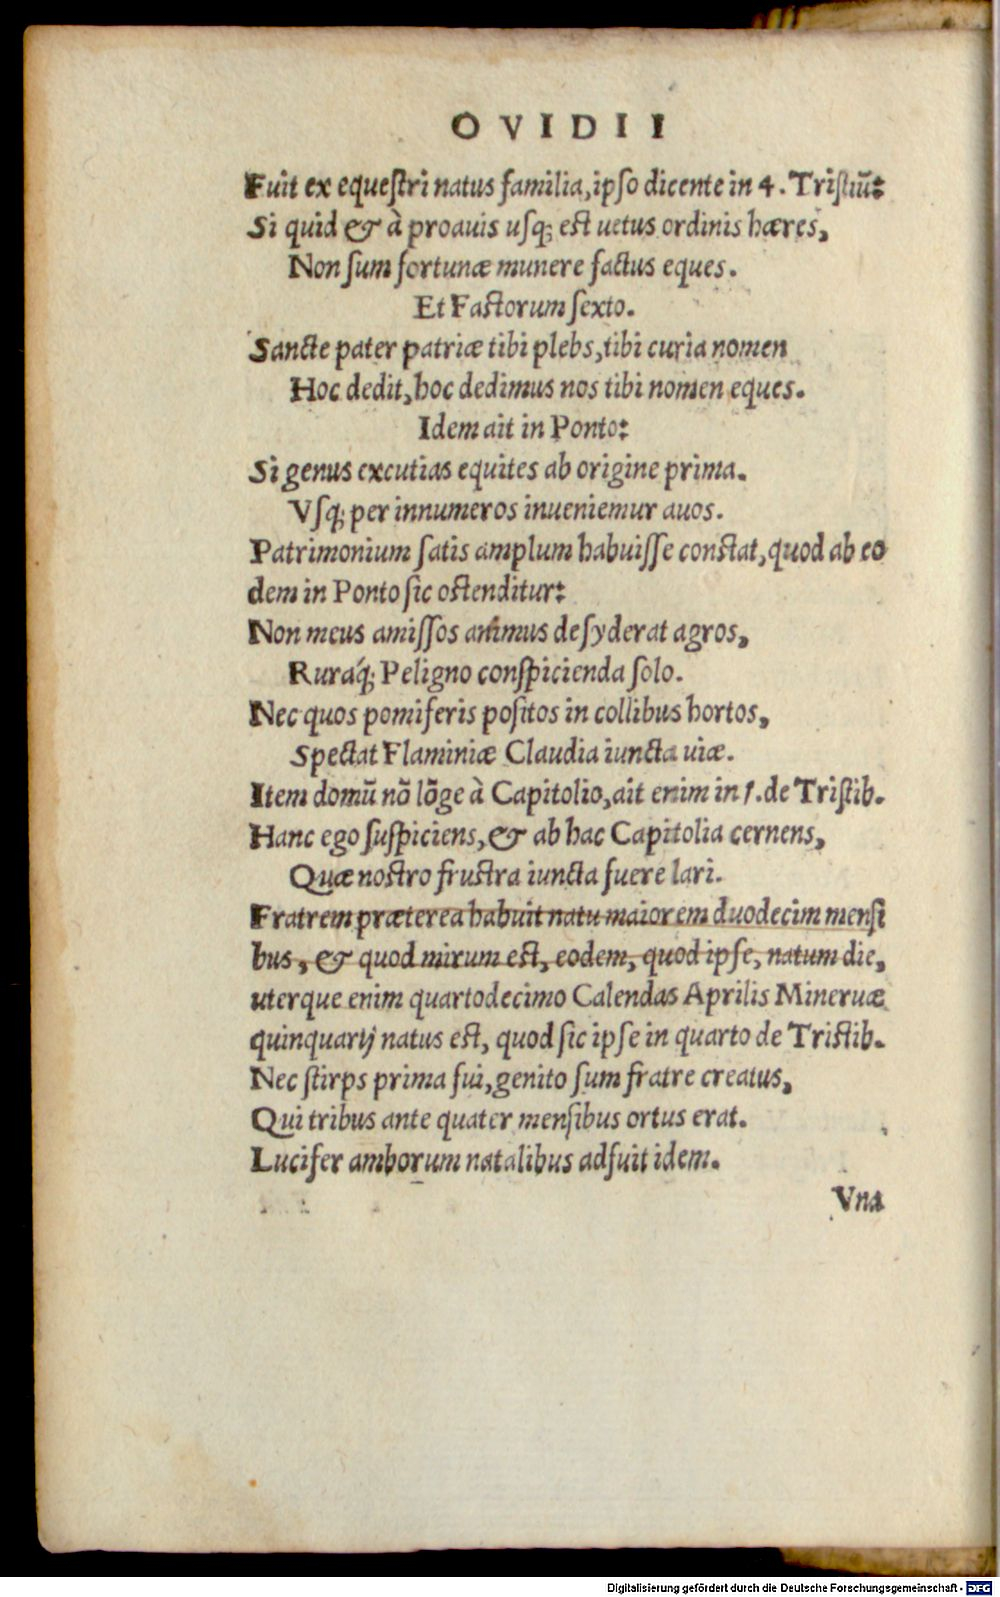 OVIDII
Fuit ex equeſtri natus familia, ipſo dicente in 4. Triſtiū:
Si quid & à proauis uſq; eſt uetus ordinis hæres,
Non ſum fortunæ munere factus eques.
Et Faſtorum ſexto.
Sancte pater patriæ tibi plebs, tibi curia nomen
Hoc dedit, hoc dedimus nos tibi nomen eques.
Idem ait in Ponto:
Si genus excutias equites ab origine prima.
Vſq; per innumeros inueniemur auos.
Patrimonium ſatis amplum habuiſſe conſtat, quod ab eo
dem in Ponto ſic oſtenditur:
Non meus amiſſos animus deſyderat agros,
Ruraq́; Peligno conſpicienda ſolo.
Nec quos pomiferis poſitos in collibus hortos,
Spectat Flaminiæ Claudia iuncta uiæ.
Item domū nō lōge à Capitolio, ait enim in 1. de Triſtib.
Hanc ego ſuſpiciens, & ab hac Capitolia cernens,
Quæ noſtro fruſtra iuncta fuere lari.
Fratrem præterea habuit natu maiorem duodecim menſi
bus, & quod mirum eſt, eodem, quod ipſe, natum die,
uterque enim quartodecimo Calendas Aprilis Mineruæ
quinquarij natus eſt, quod ſic ipſe in quarto de Triſtib.
Nec ſtirps prima fui, genito ſum fratre creatus,
Qui tribus ante quater menſibus ortus erat.
Lucifer amborum natalibus adfuit idem.
Vna
Digitalisierung gefördert durch die Deutsche Forschungsgemeinschaft - DFG